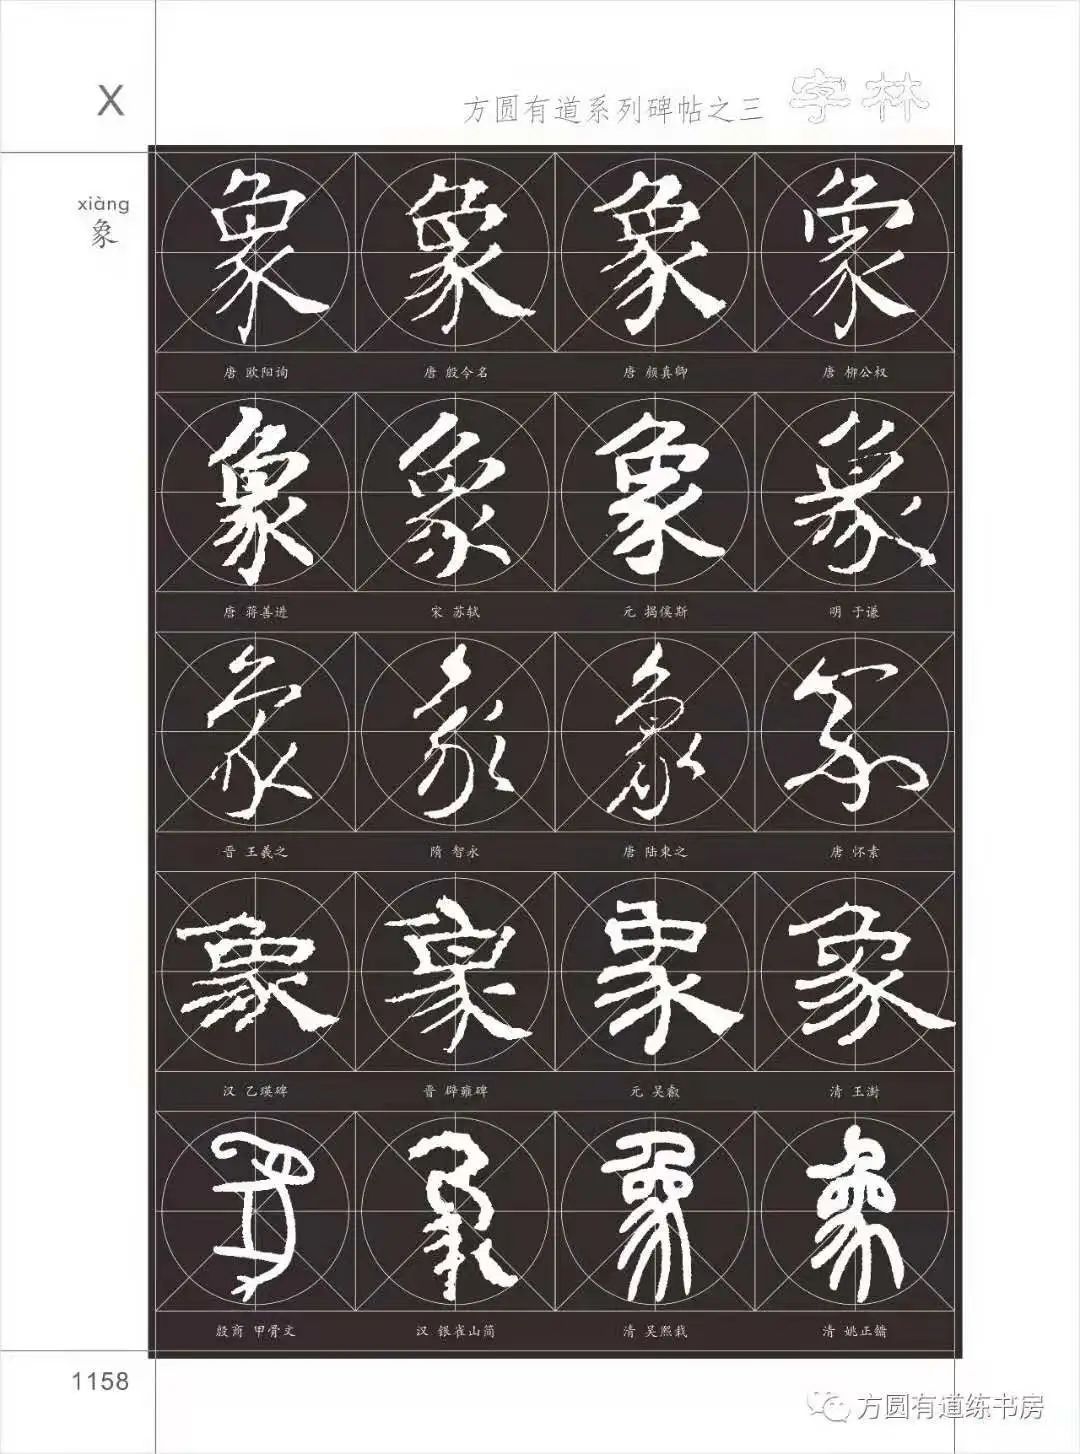 X
方圆有道系列碑帖之三 字林
xiàng
象
象 象 象 象
唐 欧阳询 唐 殷令名 唐 颜真卿 唐 柳公权
象 象 象 象
唐 蒋善进 宋 苏轼 元 揭傒斯 明 于谦
象 象 象 象
晋 王羲之 隋 智永 唐 陆柬之 唐 怀素
象 象 象 象
汉 乙瑛碑 晋 辟雍碑 元 吴叡 清 王澍
象 象 象 象
殷商 甲骨文 汉 银雀山简 清 吴熙载 清 姚正镛
1158
方圆有道练书房